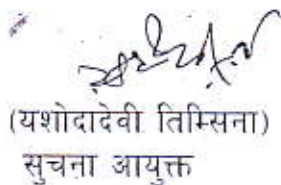 (यशोदादेवी तिम्सिना)
सुचना आयुक्त